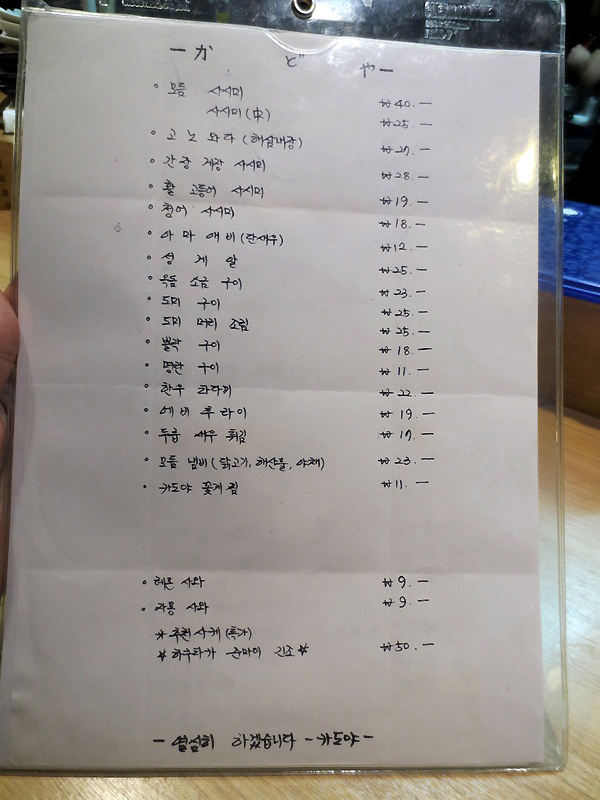 ーか ど やー
· 모듬 사시미 ₩40.-
사시미(中) ₩25.-
· 고노와다 (해삼내장) ₩27.-
· 간장 게장 사시미 ₩28.-
· 활 고등어 사시미 ₩19.-
· 청어 사시미 ₩18.-
· 아마에비(단새우) ₩12.-
· 성게알 ₩25.-
· 옥돔 소금 구이 ₩23.-
· 도미 구이 ₩25.-
· 도미 머리 조림 ₩25.-
· 볼락 구이 ₩18.-
· 명란 구이 ₩11.-
· 한우 타다끼 ₩22.-
· 에비후라이 ₩19.-
· 두릅 새우 튀김 ₩17.-
· 모듬 냄비(닭고기, 해산물, 야채) ₩23.-
· 카도야 꽃게찜 ₩11.-
· 레몬 사와 ₩9.-
· 자몽 사와 ₩9.-
* 추천사케 (특가)
* 하쿠타카 준마이 긴조 * ₩50.-
- 열심히 하겠습니다 - 카도야 -